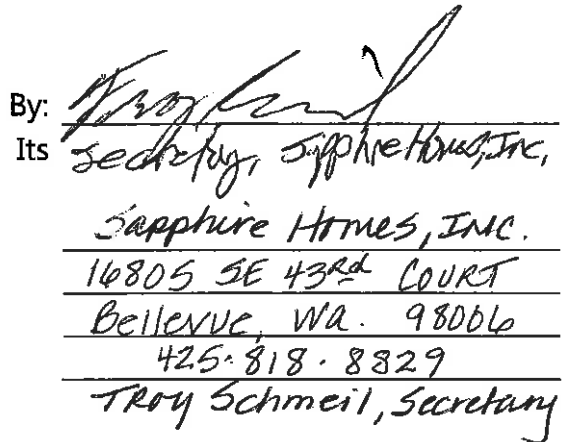 By: Troy Schmeil
Its Secretary, Sapphire Homes, Inc,
Sapphire Homes, INC.
16805 SE 43Rd COURT
Bellevue, Wa. 98006
425.818.8829
TROY Schmeil, Secretary